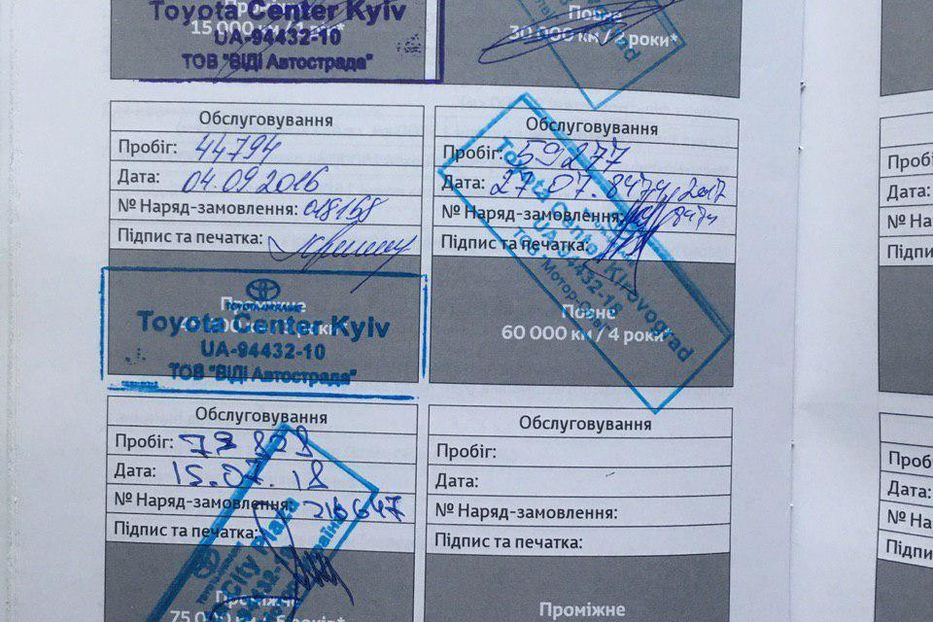 Toyota Center Kyiv
15 000 км / 1 рік*
UA-94432-10
ТОВ "ВІДІ Автострада"
Повне
30 000 км / 2 роки*
Обслуговування
Пробіг: 44794
Дата: 04.09.2016
№ Наряд-замовлення: 018168
Підпис та печатка:
Проміжне
Toyota Center Kyiv
UA-94432-10
ТОВ "ВІДІ Автострада"
Обслуговування
Пробіг: 59277
Дата: 27.07. 2017
№ Наряд-замовлення: 8474
Підпис та печатка:
Toyota Center Kirovograd
Повне
60 000 км / 4 роки
Обслуговування
Пробіг: 73 828
Дата: 15.07.18
№ Наряд-замовлення: 216647
Підпис та печатка:
City Plaza
Проміжне
75 000 км / 5 років*
Обслуговування
Пробіг:
Дата:
№ Наряд-замовлення:
Підпис та печатка:
Проміжне
Проб
Дата:
№ На
Підпи
Проб
Дата:
№ На
Підпи